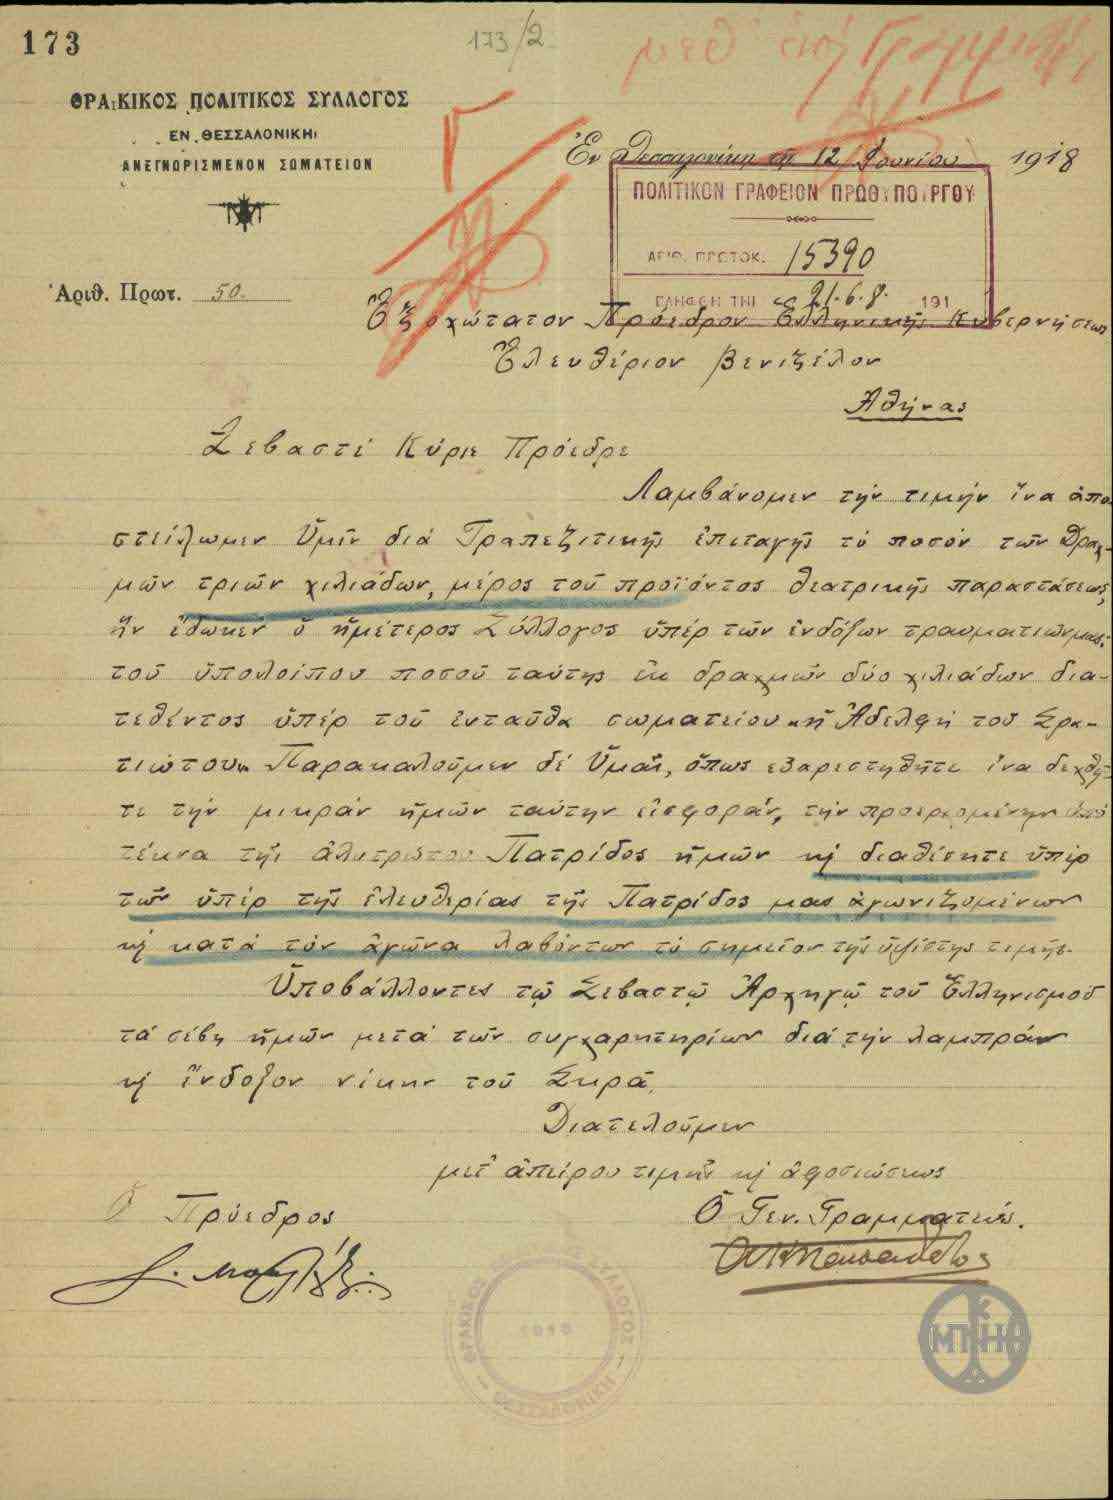 173
173/2
ΘΡΑΚΙΚΟΣ ΠΟΛΙΤΙΚΟΣ ΣΥΛΛΟΓΟΣ
ΕΝ ΘΕΣΣΑΛΟΝΙΚΗι
ΑΝΕΓΝΩΡΙΣΜΕΝΟΝ ΣΩΜΑΤΕΙΟΝ
Ἐν Θεσσαλονίκη τῇ 12 Ἰουνίου 1918
ΠΟΛΙΤΙΚΟΝ ΓΡΑΦΕΙΟΝ ΠΡΩΘΥΠΟΥΡΓΟΥ
ΑΡΙΘ. ΠΡΩΤΟΚ. 15390
ΕΛΗΦΘΗ ΤΗΙ 21.6.8. 191
Ἀριθ. Πρωτ. 50.
Ἐξοχώτατον Πρόεδρον Ἑλληνικῆς Κυβερνήσεως
Ἐλευθέριον Βενιζέλον
Ἀθήνας
Σεβαστέ Κύριε Πρόεδρε
Λαμβάνομεν τήν τιμήν ἵνα ἀπο
στείλωμεν Ὑμῖν διά Τραπεζιτικῆς ἐπιταγῆς τό ποσόν τῶν Δραχ-
μῶν τριῶν χιλιάδων, μέρος τοῦ προϊόντος θεατρικῆς παραστάσεως,
ἥν ἔδωκεν ὁ ἡμέτερος Σύλλογος ὑπέρ τῶν ἐνδόξων τραυματιῶν μας,
τοῦ ὑπολοίπου ποσοῦ ταύτης ἐκ δραχμῶν δύο χιλιάδων δια-
τεθέντος ὑπέρ τοῦ ἐνταῦθα σωματείου "ἡ Ἀδελφή τοῦ Στρα-
τιώτου". Παρακαλοῦμεν δέ Ὑμᾶς, ὅπως εὐαρεστηθῆτε ἵνα δεχθῆ-
τε τήν μικράν ἡμῶν ταύτην εἰσφοράν, τήν προερχομένην ἀπό
τέκνα τῆς ἀλυτρώτου Πατρίδος ἡμῶν κ διαθέσητε ὑπέρ
τῶν ὑπέρ τῆς ἐλευθερίας τῆς Πατρίδος μας ἀγωνιζομένων
κ κατά τόν ἀγῶνα λαβόντων τό σημεῖον τῆς ὑψίστης τιμῆς.
Ὑποβάλλοντες τῷ Σεβαστῷ Ἀρχηγῷ τοῦ Ἑλληνισμοῦ
τά σέβη ἡμῶν μετά τῶν συγχαρητηρίων διά τήν λαμπράν
κ ἔνδοξον νίκην τοῦ Σκρᾶ,
Διατελοῦμεν
μετ' ἀπείρου τιμῆς κ ἀφοσιώσεως
Ὁ Πρόεδρος
Ὁ Γεν. Γραμματεύς.
ΘΡΑΚΙΚΟΣ ΣΥΛΛΟΓΟΣ
ΘΕΣΣΑΛΟΝΙΚΗ